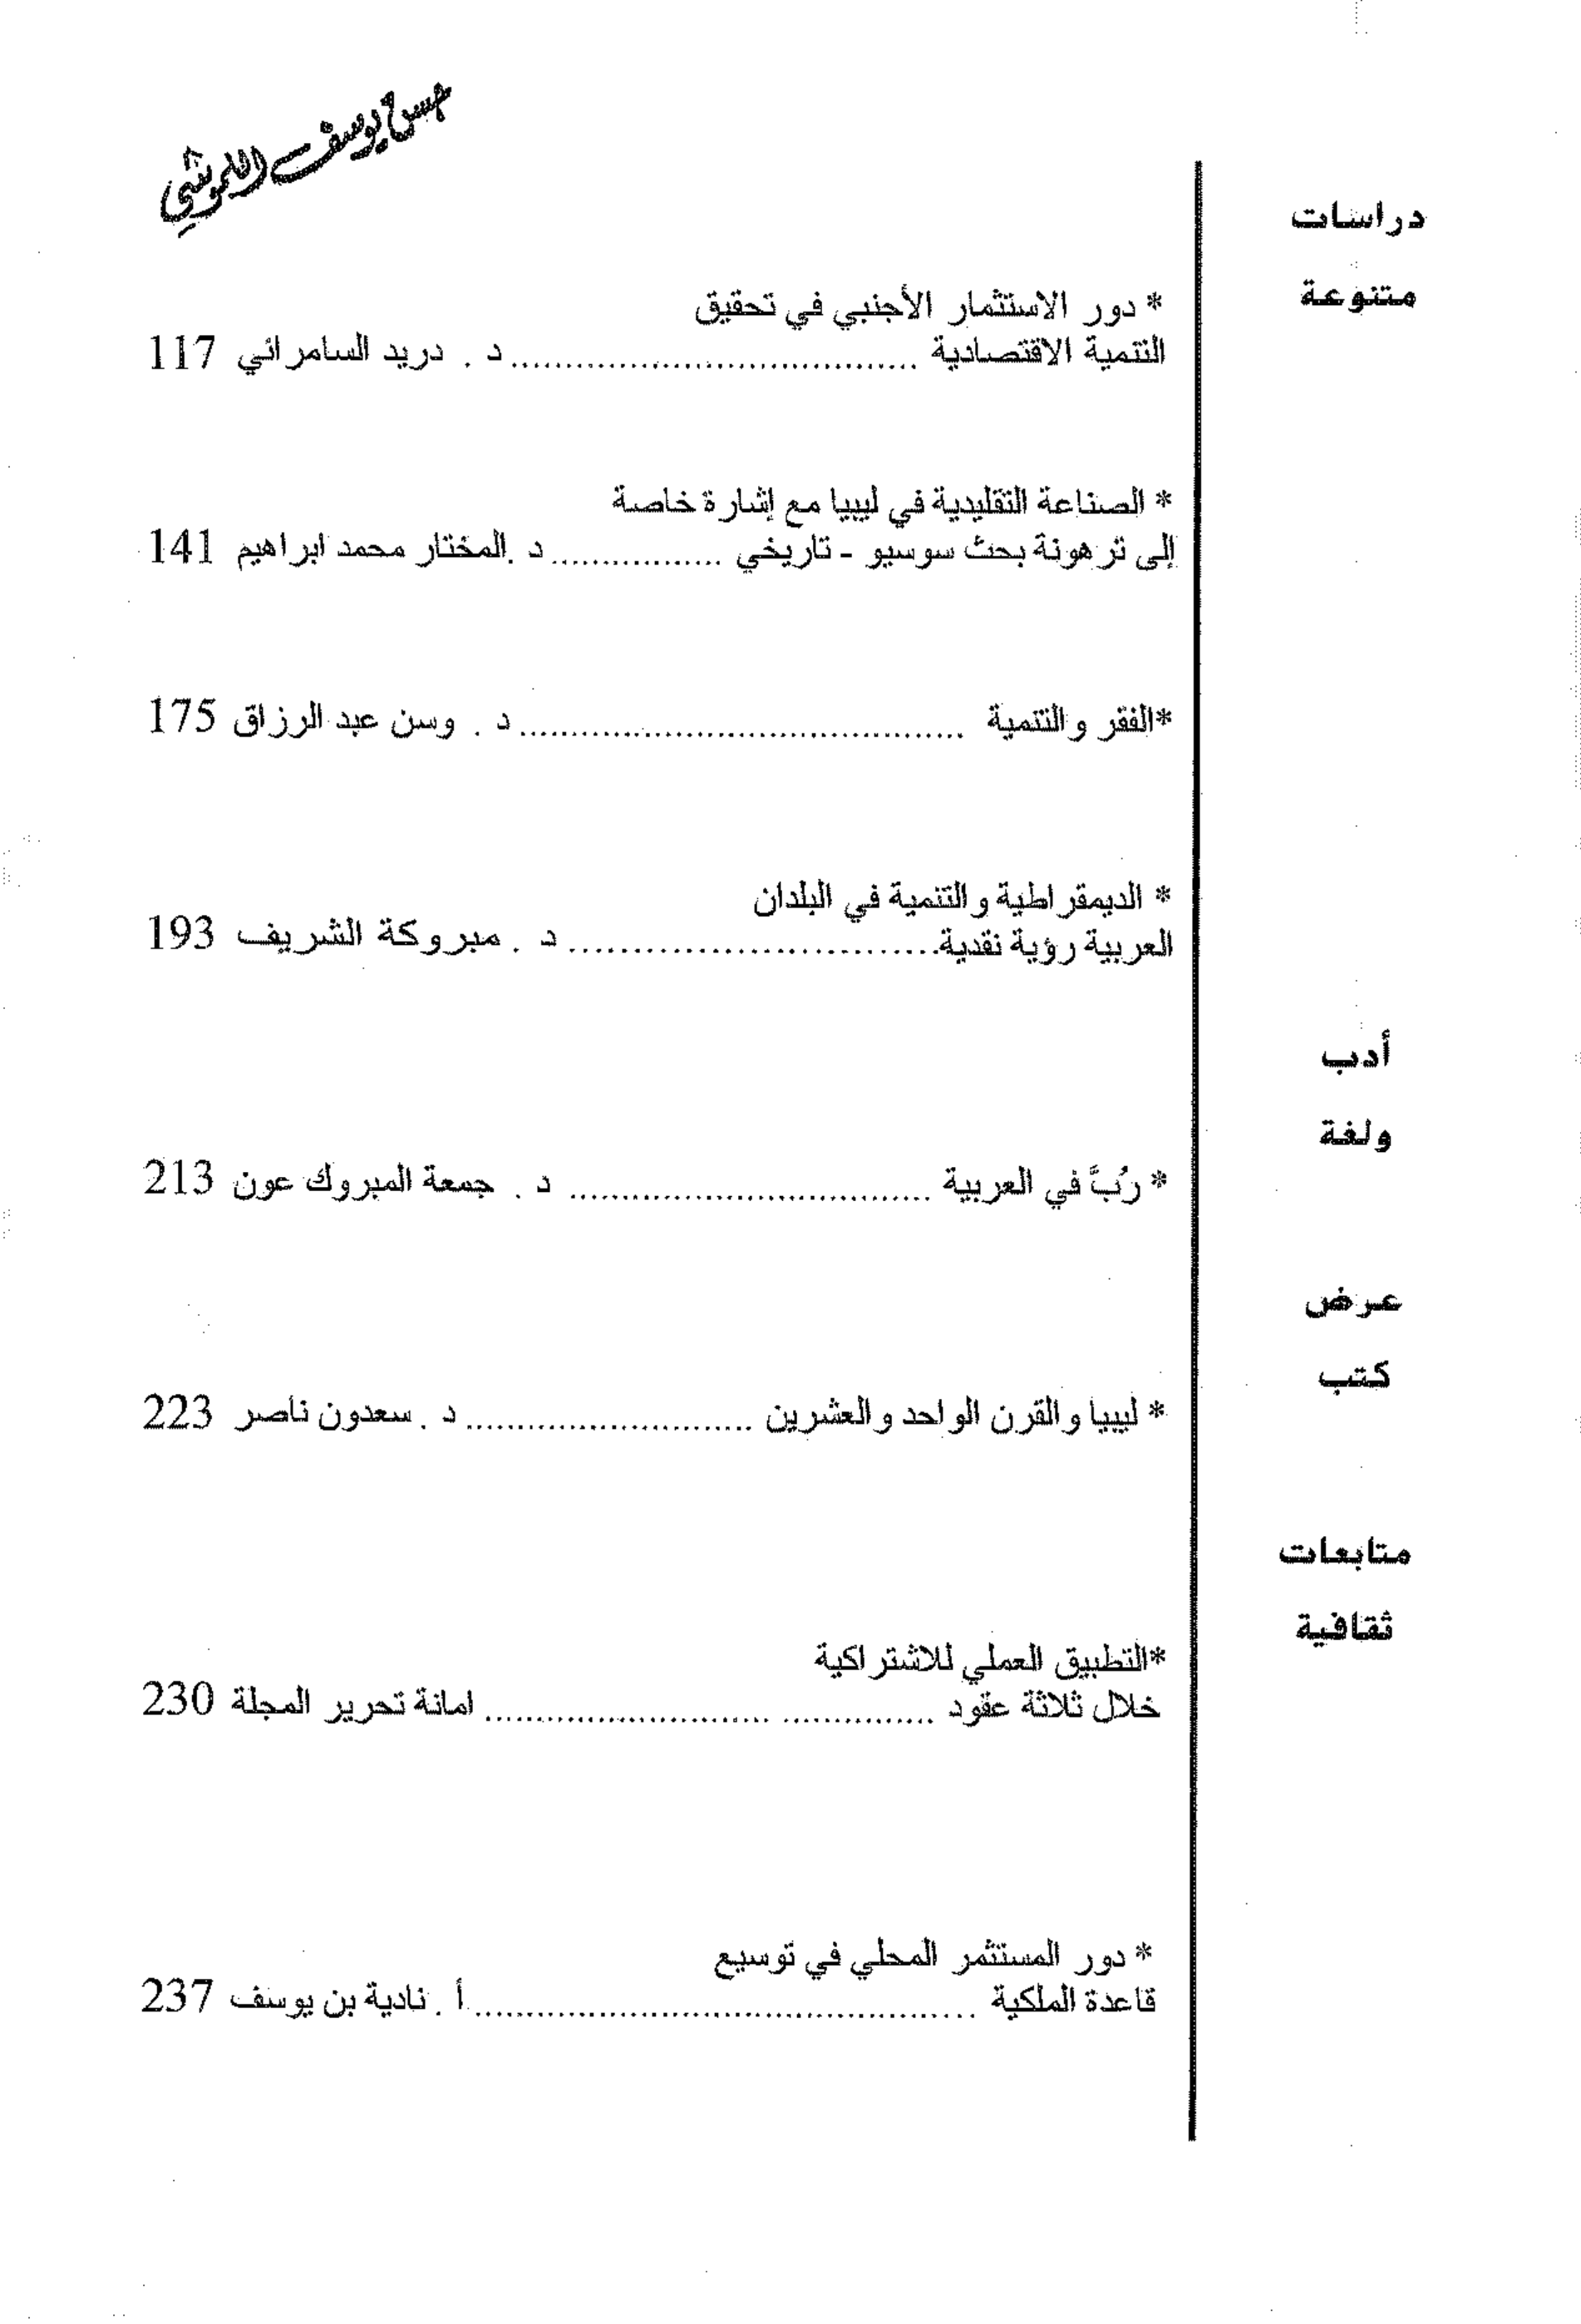 حسن يوسف
دراسات
متنوعة
* دور الاستثمار الأجنبي في تحقيق
التنمية الاقتصادية ........................................ د . دريد السامرائي 117
* الصناعة التقليدية في ليبيا مع إشارة خاصة
إلى ترهونة بحث سوسيو - تاريخي ................. د .المختار محمد ابراهيم 141
*الفقر والتنمية ............................................ د . وسن عبد الرزاق 175
* الديمقراطية والتنمية في البلدان
العربية رؤية نقدية.............................. د . مبروكة الشريف 193
أدب
ولغة
* رُبَّ في العربية .................................... د . جمعة المبروك عون 213
عرض
كتب
* ليبيا والقرن الواحد والعشرين ............................ د . سعدون ناصر 223
متابعات
ثقافية
*التطبيق العملي للاشتراكية
خلال ثلاثة عقود ............... ............................ امانة تحرير المجلة 230
* دور المستثمر المحلي في توسيع
قاعدة الملكية .................................................. أ . نادية بن يوسف 237